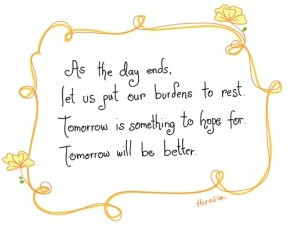 As the day ends,
let us put our burdens to rest.
Tomorrow is something to hope for.
Tomorrow will be better.
threeaa